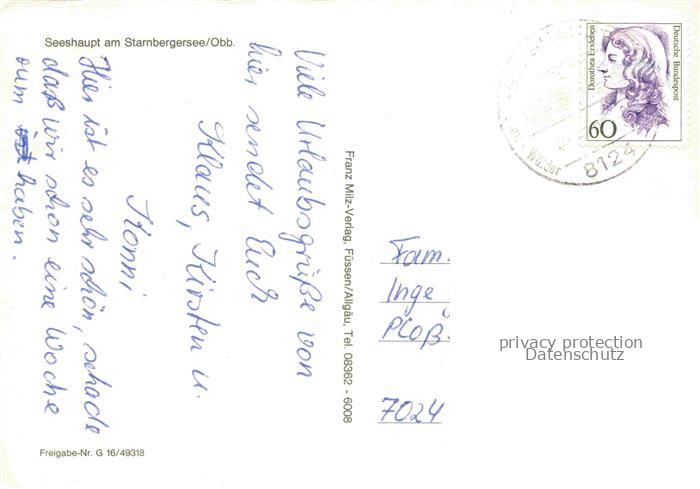 Seeshaupt am Starnbergersee/Obb.
Viele Urlaubsgrüße von
hier sendet Euch
Klaus, Kirsten u.
Konni
Hier ist es sehr schön, schade
daß wir schon eine Woche
rum haben.
Freigabe-Nr. G 16/49318
Franz Milz-Verlag, Füssen/Allgäu, Tel. 08362 - 6008
Deutsche Bundespost
Dorothea Erxleben
60
8124
Fam.
Inge
Ploß.
7024
privacy protection
Datenschutz